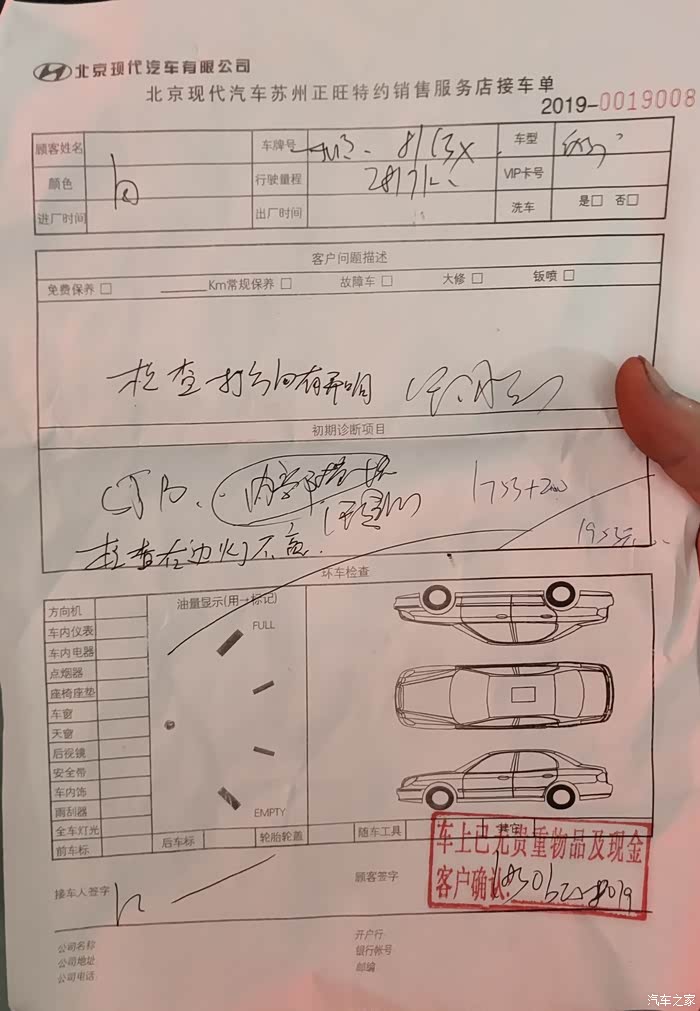 北京现代汽车有限公司
北京现代汽车苏州正旺特约销售服务店接车单
2019-0019008
顾客姓名 车牌号 8163X 车型
颜色 行驶量程 VIP卡号
进厂时间 出厂时间 洗车 是□ 否□
客户问题描述
免费保养 □ ______Km常规保养 □ 故障车 □ 大修 □ 钣喷 □
检查 有异响
初期诊断项目
1753+200
检查左边灯不亮
环车检查
方向机
车内仪表
车内电器
点烟器
座椅座垫
车窗
天窗
后视镜
安全带
车内饰
雨刮器
全车灯光
前车标
油量显示(用→标记)
FULL
EMPTY
后车标 轮胎轮盖 随车工具 其它
车上已无贵重物品及现金
客户确认:
接车人签字 顾客签字
公司名称
公司地址
公司电话
开户行
银行帐号
邮编
汽车之家